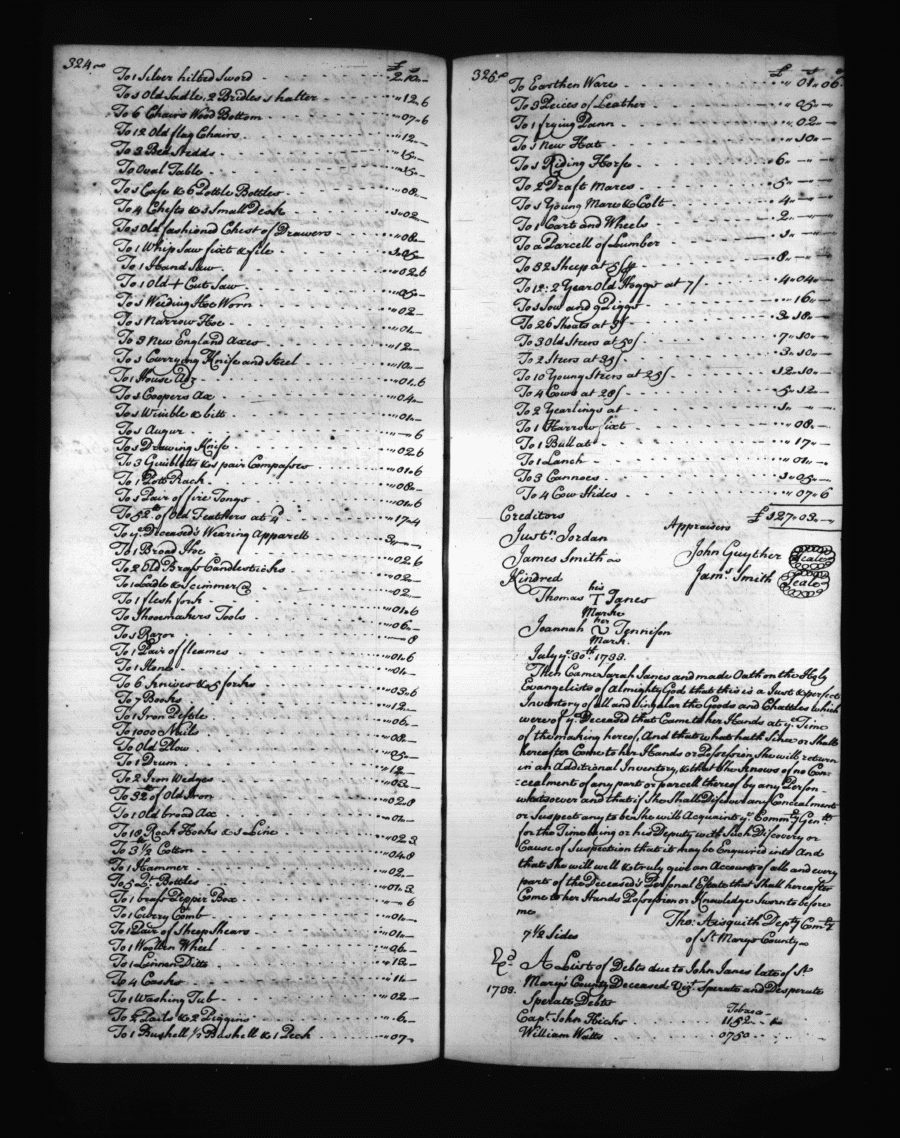 324
£ s
To 1 Silver hilted Sword 2..10..—
To 1 Old Sadle, 2 Bridles & halter ..12..6
To 6 Chairs Wood Bottom ..07..6
To 12 Old flag Chairs ..12..—
To 3 Bed Stedds ..15..—
To Oval Table ..15..—
To 1 Case & 6 Pottle Bottles ..08..
To 4 Chests & 1 Small Desk 1..02
To 1 Old fashioned Chest of Drawers ..08..
To 1 Whip Saw fixt & file 1..05..—
To 1 Hand Saw ..02..6
To 1 Old + Cut Saw ..05..—
To 1 Weeding Hoe Worn ..02..—
To 1 Narrow Hoe ..01..
To 3 New England Axes ..12..—
To 1 Currying Knife and Steel ..10..—
To 1 House Adz ..01..6
To 1 Coopers Ax ..04..
To 1 Wrimble & bitt ..01..
To 1 Augur ..—..6
To 1 Drawing Knife ..02..6
To 3 Guiblotts & 1 pair Compasses ..01..6
To 1 Pott Rack ..08..
To 1 Pair of fire Tongs ..01..6
To 52 lb of Old Feathers at 4d ..17..4
To ye Deceased's Wearing Apparell 3..—
To 1 Broad Hoe ..02..6
To 2 Old Brass Candlesticks ..02..—
To 1 Ladle & Scimmer ..02..
To 1 flesh fork ..01..6
To Shoemakers Tools ..06..
To 1 Razor ..—8
To 1 Pair of fleames ..01..6
To 1 Hone ..01..
To 6 Knives & 5 forks ..03..6
To 7 Books ..12..
To 1 Iron Pestle ..06..
To 1000 Nails ..08..
To Old Plow ..05..—
To 1 Drum ..12..—
To 2 Iron Wedges ..03..
To 32 lb of Old Iron ..02..8
To 1 Old broad Ax ..01..
To 10 Rock Hooks & 1 Line ..02..3
To 3 1/2 Cotton ..04..8
To 1 Hammer ..02..
To 5 Qt. Bottles ..01..3
To 1 brass Pepper Box ..—6
To 1 Curry Comb ..01..
To 1 Pair of Sheep Shears ..01..
To 1 Woollen Wheel ..06..
To 1 Linnen Ditto ..13..
To 4 Casks ..11..
To 1 Washing Tub ..02..
To 2 Pails & 2 Piggins ..6..
To 1 Bushell 1/2 Bushell & 1 Peck ..07..
325
£ s d
To Earthen Ware ..01..06
To 3 Peices of Leather ..05..—
To 1 frying Pann ..02..—
To 1 New Hat ..10..—
To 1 Riding Horse 6..—
To 2 Draft Mares 5..—
To 1 Young Mare & Colt 4..—
To 1 Cart and Wheels 2..—
To a Parcell of Lumber 1..—
To 32 Sheep at 5/ 8..—
To 12: 2 Year Old Hoggs at 7/ 4..04..—
To 1 Sow and 9 Piggs ..16..—
To 26 Shoats at 3/ 3..18..—
To 3 Old Steers at 50/ 7..10..—
To 2 Steers at 35/ 3..10..—
To 10 Young Steers at 25/ 12..10..—
To 4 Cows at 28/ 5..12..—
To 2 Yearlings at 1..—
To 1 Harrow fixt ..08..
To 1 Bull at ..17..—
To 1 Lanch ..01..—
To 3 Cannoes 1..05..—
To 4 Cow Hides ..07..6
£ 127..03..—
Creditors
Appraisers
Justn. Jordan
James Smith
John Guyther Seale
Kindred
Jams. Smith Seale
his
Thomas T Janes
Marke
her
Joannah Tennison
Mark
July ye. 30th. 1733.
Then Came Sarah Janes and made Oath on the Holy
Evangelists of Almighty God that this is a Just & perfect
Inventory of all and Singular the Goods and Chattles which
were of ye. Deceased that Came to her Hands at ye. Time
of the making hereof, And that what hath Since or Shall
hereafter Come to her Hands or Possession She will return
in an Additional Inventory, & that She Knows of no Con-
-cealment of any part or parcell thereof by any Person
whatsoever and that if She Shall Discover any Concealment
or Suspect any to be She will Acquaint ye. Commry. Genll.
for the Time being or his Deputy with Such Discovery or
Cause of Suspection that it may be Enquired into And
that She will well & truly give an Account of all and every
parts of the Deceased's Personal Estate that Shall hereafter
Come to her Hands Possession or Knowledge Sworn before
me
Tho: Aisquith Depty Comry
7 1/2 Sides
of St. Marys County
A List of Debts due to John Janes late of St.
1733.
Marys County Deceased Vizt. Sperate and Desperate
Sperate Debts
Tobacco
Capt. John Hicks 1152
William Watts 0750